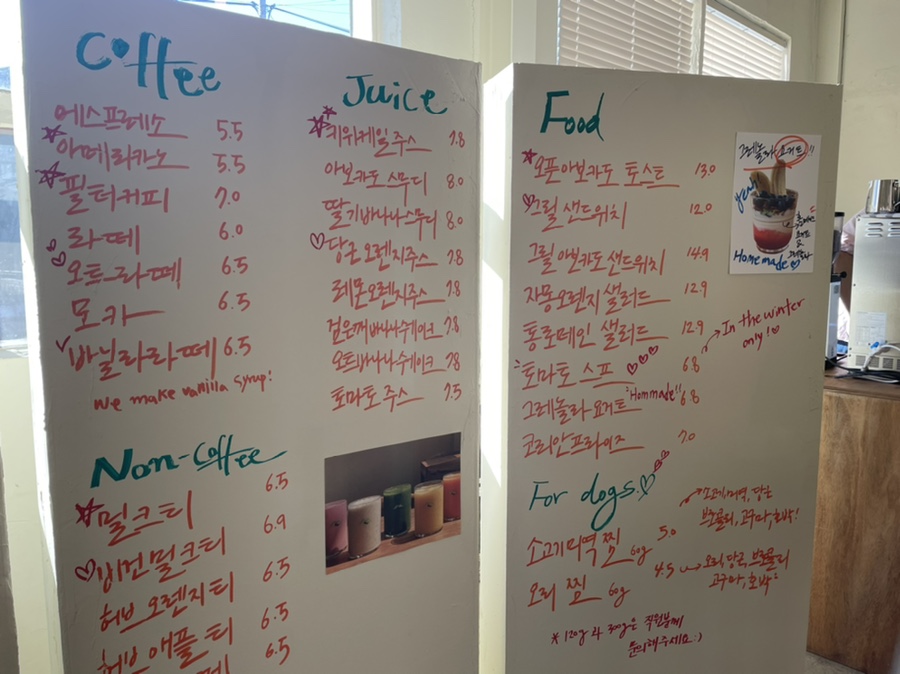 Coffee
에스프레소 5.5
아메리카노 5.5
필터커피 7.0
라떼 6.0
오트라떼 6.5
모카 6.5
바닐라라떼 6.5
we make vanilla syrup!
Non-Coffee
밀크티 6.5
비건밀크티 6.9
허브 오렌지티 6.5
허브 애플티 6.5
6.5
Juice
키위케일주스 7.8
아보카도 스무디 8.0
딸기바나나스무디 8.0
당근오렌지주스 7.8
레몬오렌지주스 7.8
검은깨바나나쉐이크 7.8
오트바나나쉐이크 7.8
토마토주스 7.5
Food
오픈아보카도 토스트 13.0
그릴 샌드위치 12.0
그릴 아보카도샌드위치 14.9
자몽오렌지샐러드 12.9
통로메인 샐러드 12.9
토마토스프 6.8
In the winter
only!
그레놀라요거트 "Hommade" 6.8
코리안프라이즈 7.0
그레놀라 요거트!!
yeah
Homemade
For dogs
소고기미역찜 60g 5.0
소고기,미역,당근
브로콜리,고구마,호박!
오리 찜 60g 4.5
오리,당근,브로콜리
고구마,호박
*120g과 300g은 직원분께
문의해주세요:)